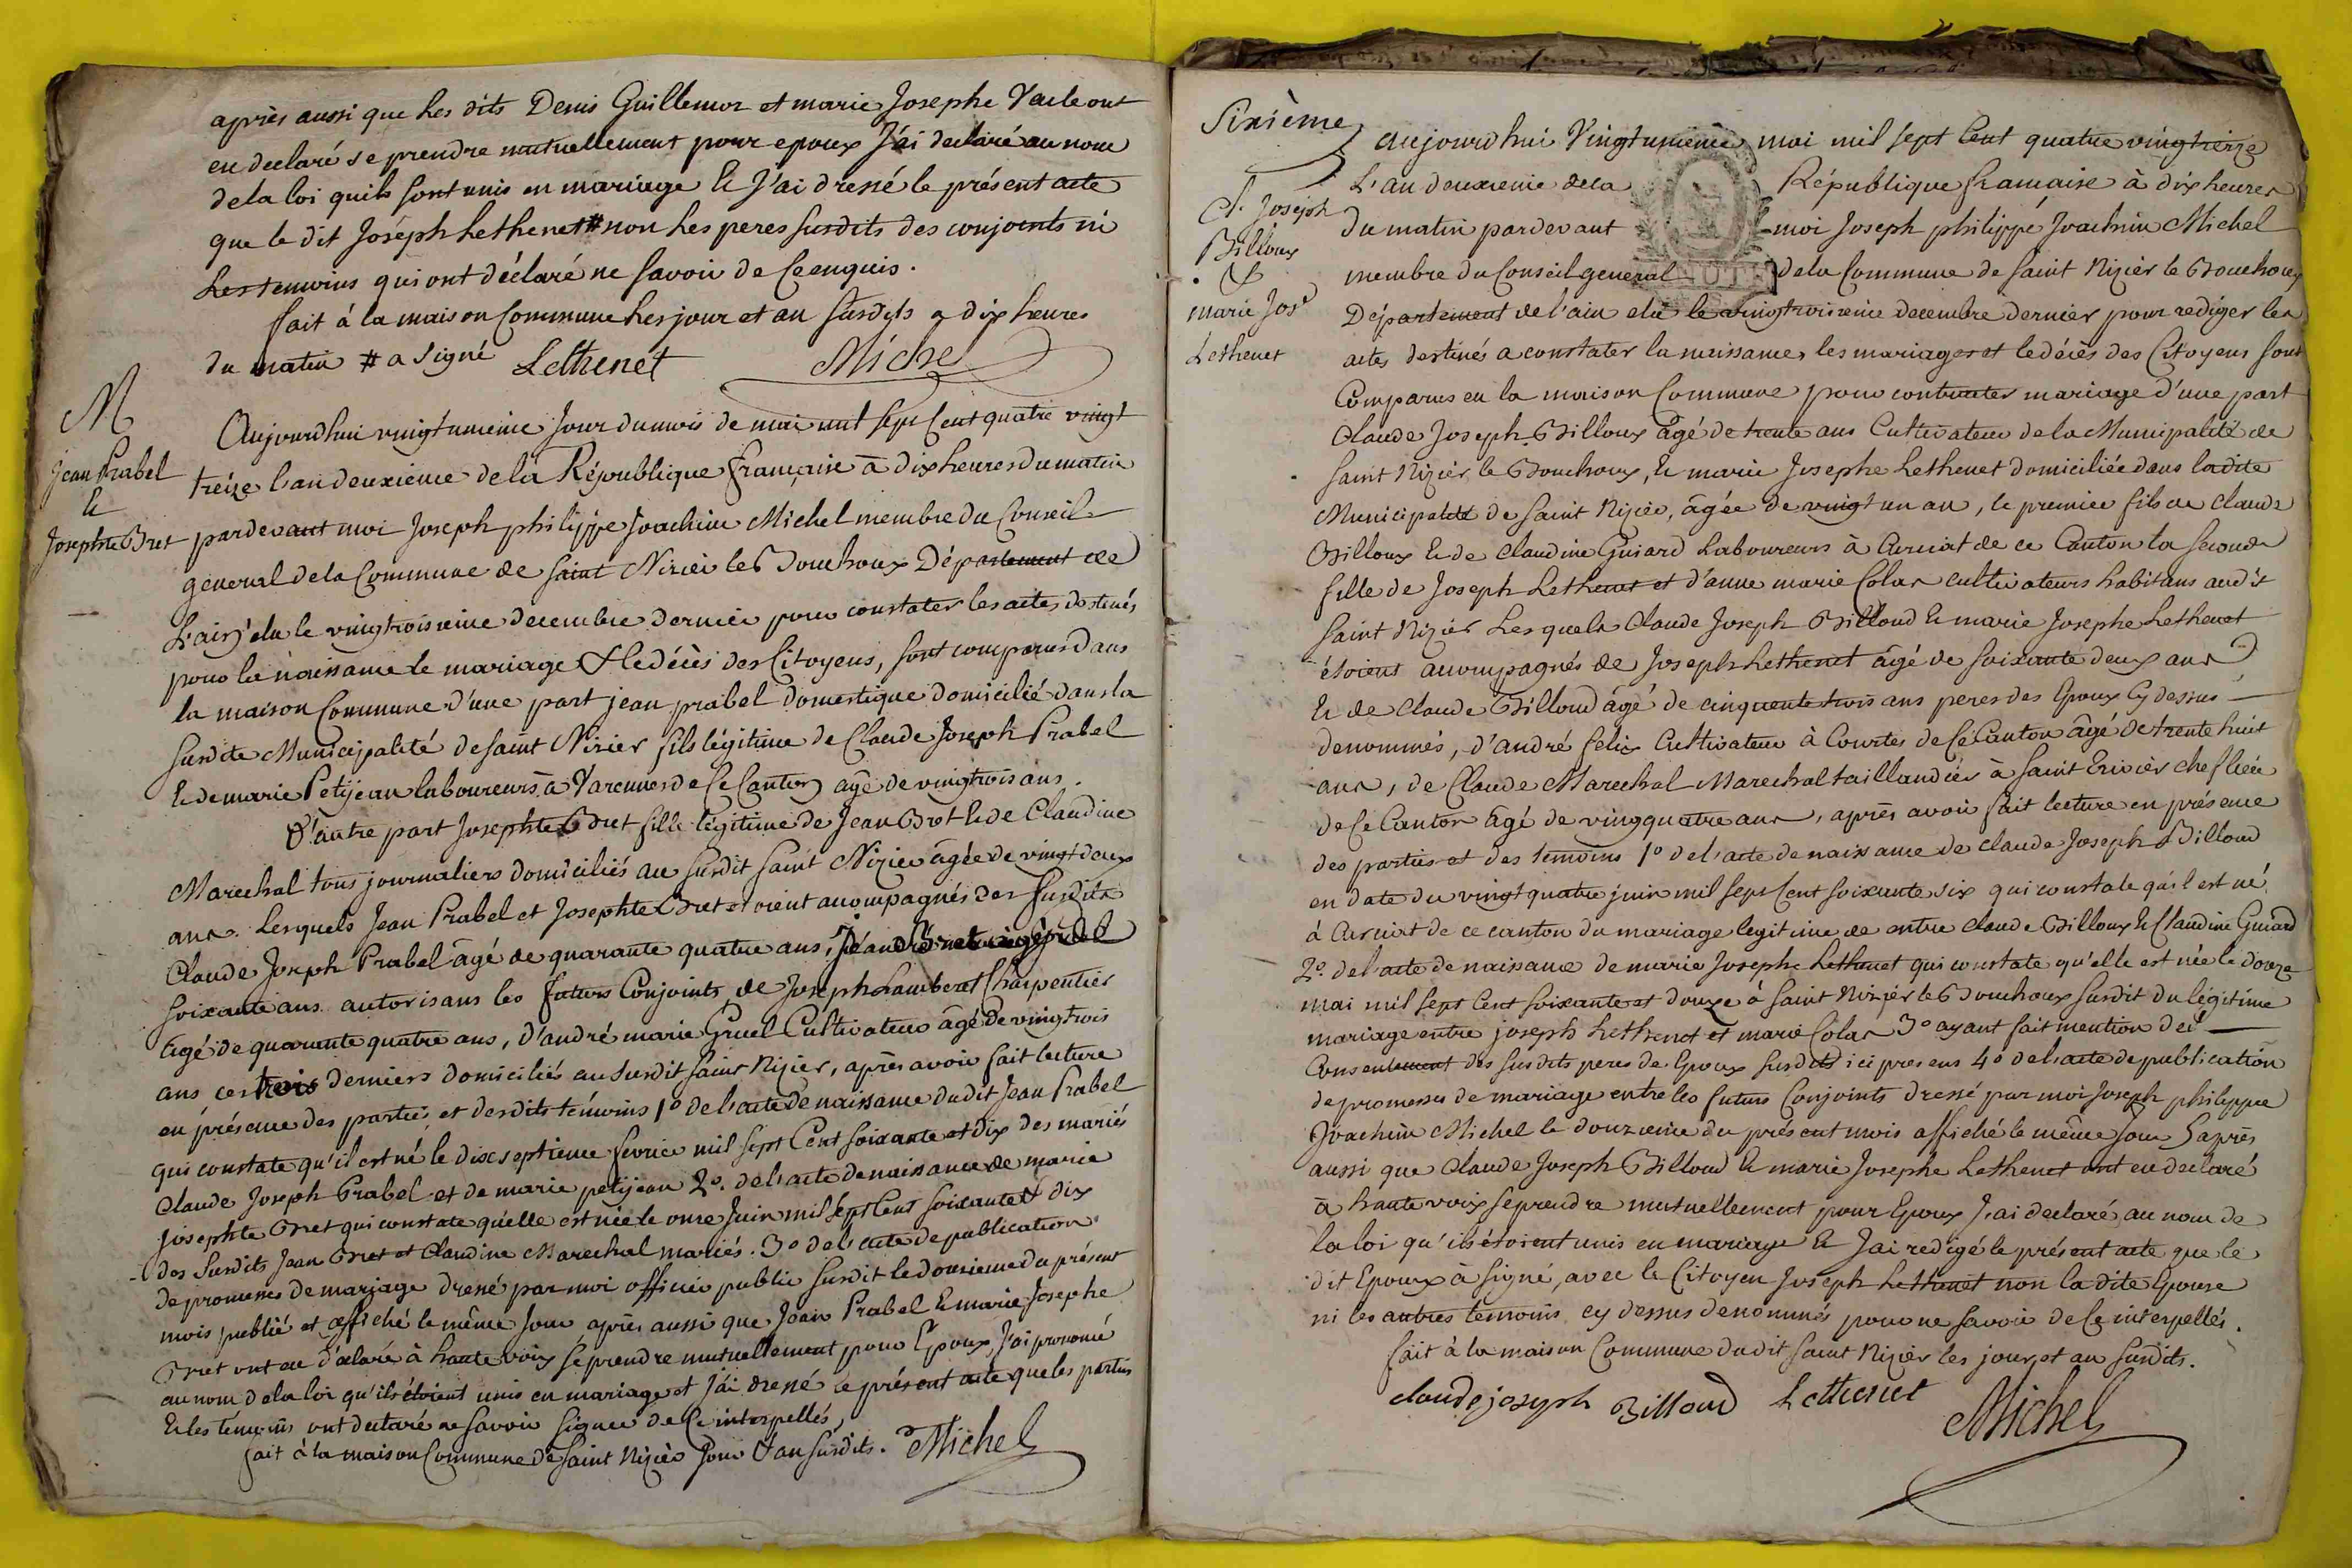 après aussi que les dits Denis Guillemoz et marie Josephe Vaile ont
eu declaré se prendre mutuellement pour epoux J'ai declaré au nom
de la loi quils sont unis en mariage & J'ai dressé le présent acte
que le dit Joséph Lethenet # non les peres susdits des conjoints ni
Les temoins qui ont déclaré ne savoir de ce enquis.
fait à la maison Commune les jour et an susdits a dix heures
du matin # a signé Lethenet Michel
M
jean Prabel
&
Josephte Bret
Aujourdhui vingtunieme Jour du mois de mai mil sept Cent quatre vingt
treize l'an deuxieme de la République française à dix heures du matin
pardevant moi Joseph philippe Joachim Michel membre du Conseil
general de la Commune de Saint Nizier le Bouchoux Département de
L'ain, elu le vingtroisieme decembre dernier pour constater les actes destinés
pour la naissance le mariage & le décès des Citoyens, sont comparus dans
la maison Commune d'une part jean prabel domestique domicilié dans la
susdite Municipalité de saint Nizier fils légitime de Claude Joseph Prabel
& de marie Petijean laboureurs à Varennes de ce Canton agé de vingtrois ans.
D'autre part Josephte Bret fille légitime de Jean Bret & de Claudine
Marechal tous journaliers domiciliés au susdit saint Nizier âgée de vingt deux
ans. Lesquels Jean Prabel et Josephte Bret etoient accompagnés des susdits
Claude Joseph Prabel âgé de quarante quatre ans, Jean Bret agé de
soixante ans autorisans les futurs Conjoints, de Joseph Lamberet Charpentier
âgé de quarante quatre ans, d'andré marie Gruel Cultivateur âgé de vingtrois
ans ces trois derniers domiciliés au susdit saint Nizier, après avoir fait lecture
en présence des parties et desdits témoins 1º de l'acte de naissance dudit Jean Prabel
qui constate qu'il est né le dixseptieme fevrier mil sept Cent soixante et dix des mariés
Claude Joseph Prabel et de marie petijean 2º. de l'acte de naissance de marie
josephte Bret qui constate qu'elle est née le onze Juin mil sept Cent soixante & dix
des susdits Jean Bret et Claudine Marechal mariés. 3º de l'acte de publication
de promesses de mariage dressé par moi officier public susdit le douzieme du présent
mois publié et affiché le même jour après aussi que Jean Prabel & marie Josephe
Bret ont eu d'eclaré à haute voix se prendre mutuellement pour Epoux, J'ai prononcé
au nom de la loi qu'ils étoient unis en mariage et J'ai dressé le présent acte que les parties
& les temoins ont declaré ne savoir signer de ce interpellés,
fait à la maison Commune de saint Nizier Jour & an susdits. Michel
Sixième
Cl. Joseph
Billoux
&
marie Jose
Lethenet
Aujourdhui Vingtunieme mai mil sept Cent quatre vingtreize
L'an deuxieme de la République française à dix heures
du matin pardevant moi Joseph philippe Joachim Michel
membre du Conseil general de la Commune de saint Nizier le Bouchoux
Département de l'ain elu le vingtroisieme decembre dernier pour rediger les
actes destinés a constater la naissance, les mariages et le décès des Citoyens sont
Comparus en la maison Commune pour contracter mariage d'une part
Claude Joseph Billoux âgé de trente ans Cultivateur de la Municipalité de
saint Nizier le Bouchoux, & marie Josephe Lethenet domiciliée dans la dite
Municipalité de saint Nizier, âgée de vingt un an, le premier fils de Claude
Billoux & de Claudine Guiard Laboureurs à Curciat de ce Canton la seconde
fille de Joseph Lethenet et d'anne marie Colas cultivateurs habitans audit
Saint Nizier Lesquels Claude Joseph Billoud & marie Josephe Lethenet
étoient accompagnés de Joseph Lethenet âgé de soixante deux ans
& de Claude Billoud âgé de cinquante trois ans peres des Epoux Cy dessus
denommés, d'andré felix Cultivateur à Courtes de ce Canton âgé de trente huit
ans, de Claude Marechal Marechal taillandier à saint Trivier chef lieu
de ce Canton âgé de vingquatre ans, après avoir fait lecture en présence
des parties et des témoins 1º de l'acte de naissance de Claude Joseph Billoud
en date du vingt quatre juin mil sept Cent soixante six qui constate qu'il est né
à Curciat de ce canton du mariage legitime de entre Claude Billoux & Claudine Guiard
2º. de l'acte de naissance de marie Josephe Lethenet qui constate qu'elle est née le douze
mai mil sept Cent soixante et douze à Saint Nizier le Bouchoux susdit du légitime
mariage entre joseph Lethenet et marie Colas 3º ayant fait mention del
Consentement des susdits peres des Epoux susdits ici presens 4º de l'acte de publication
de promesses de mariage entre les futurs Conjoints dressé par moi Joseph philippe
Joachim Michel le douzieme du présent mois affiché le même jour & après
aussi que Claude Joseph Billoud & marie Josephe Lethenet ont eu declaré
à haute voix se prendre mutuellement pour Epoux J'ai declaré au nom de
la loi qu'ils étoient unis en mariage & J'ai redigé le présent acte que le
dit Epoux à signé, avec le Citoyen Joseph Lethenet non la dite Epouse
ni les autres temoins cy dessus denommés pour ne savoir de ce interpellés.
fait à la maison Commune dudit saint Nizier les jour et an susdits.
claude joseph Billoud Lethenet Michel